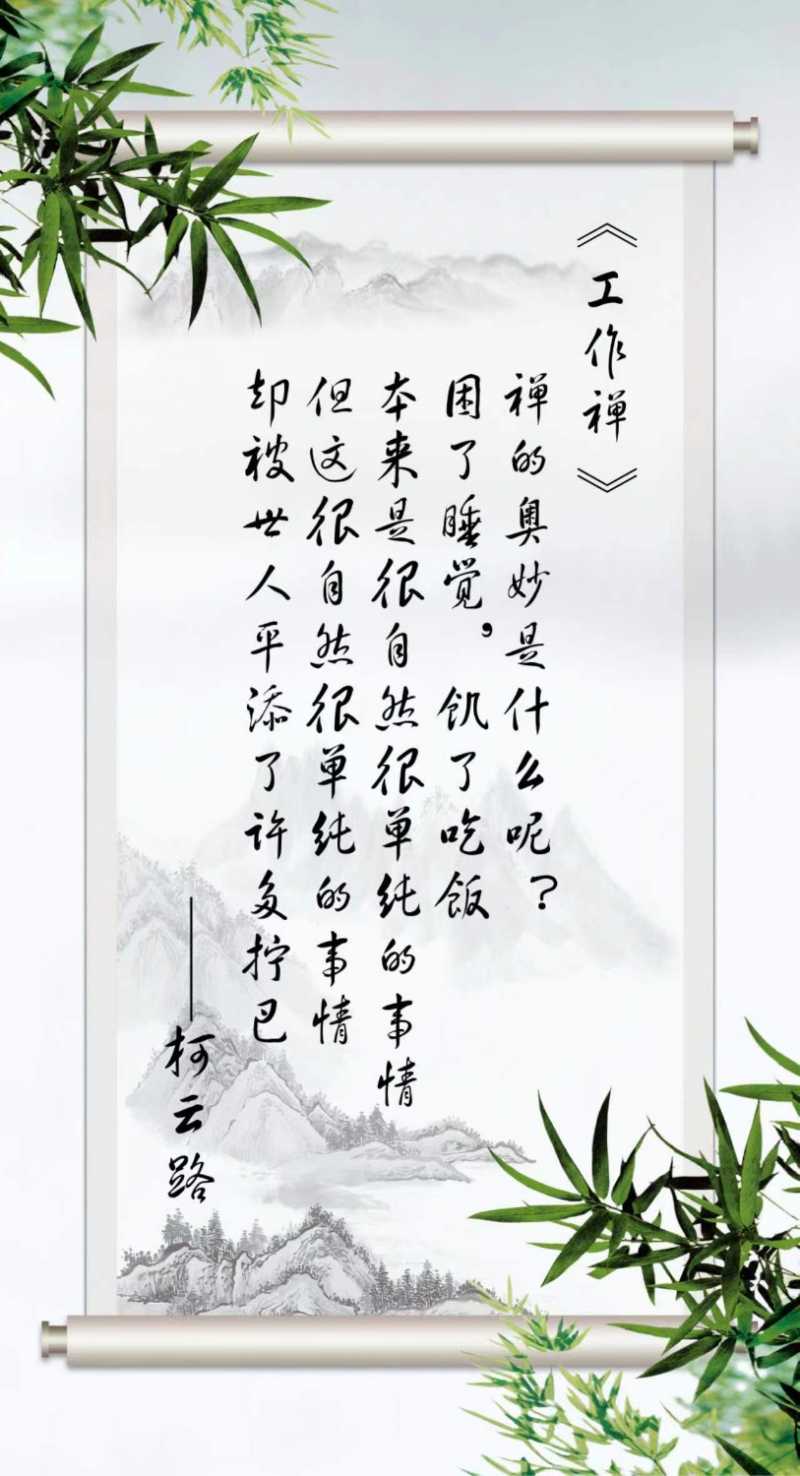 《工作禅》
禅的奥妙是什么呢?
困了睡觉,饥了吃饭
本来是很自然很单纯的事情
但这很自然很单纯的事情
却被世人平添了许多拧巴
——柯云路